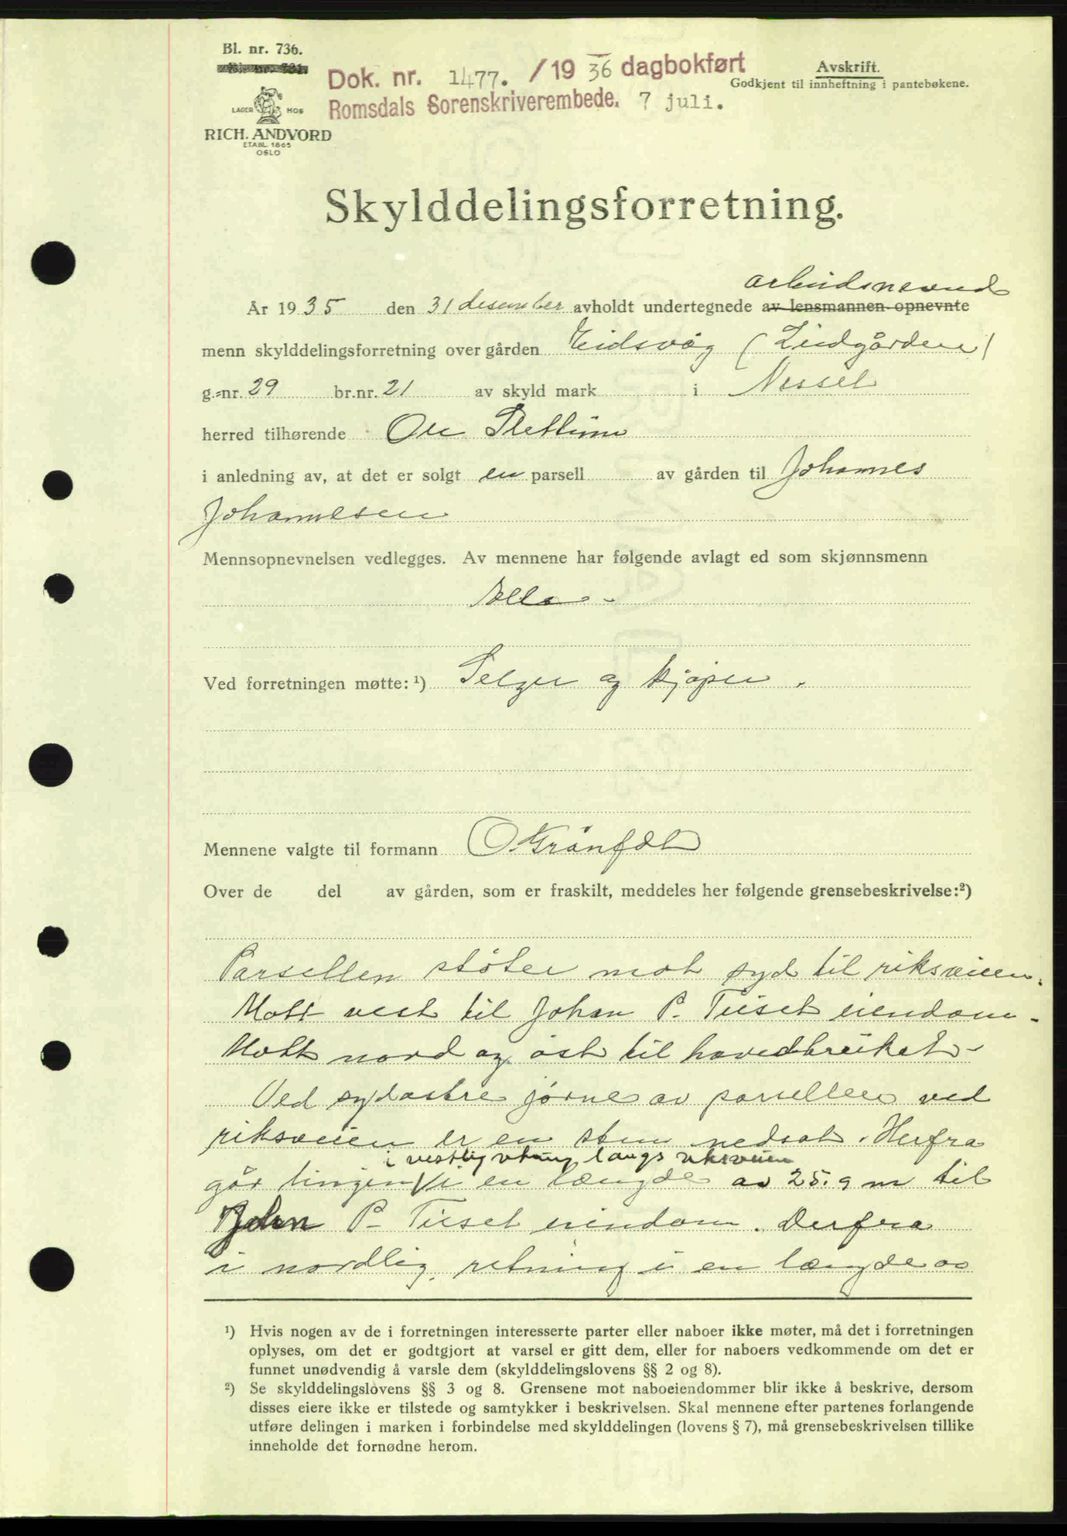 Bl. nr. 736.
Dok. nr. 1477. /19 36 dagbokført
Romsdals Sorenskriverembede. 7 juli.
Avskrift.
Godkjent til innheftning i pantebøkene.
LAGER MOE
RICH. ANDVORD
ETABL. 1865
OSLO
Skylddelingsforretning.
arbeidsnevnd
År 1935 den 31 desember avholdt undertegnede av lensmannen opnevnte
menn skylddelingsforretning over gården Eidsvåg (Lidgården)
g.-nr. 29 br.nr. 21 av skyld mark i Nesset
herred tilhørende Ole Slettum
i anledning av, at det er solgt en parsell av gården til Johannes
Johannesen
Mennsopnevnelsen vedlegges. Av mennene har følgende avlagt ed som skjønnsmenn
Alle -
Ved forretningen møtte: ¹) Selger og kjøper.
Mennene valgte til formann O. Grønfdt
Over de del av gården, som er fraskilt, meddeles her følgende grensebeskrivelse:²)
Parsellen støter mot syd til riksveien.
Mott vest til Johan P. Tiset eiendom.
Mott nord og øst til hovedbruket -
Ved sydøstre jørne av parsellen ved
riksveien er en sten nedsat. Herfra
i vestlig retning langs riksveien
går linjen i en længde av 25.9 m til
John P. Tiset eiendom. Derfra
i nordlig retning i en længde av
¹) Hvis nogen av de i forretningen interesserte parter eller naboer ikke møter, må det i forretningen
oplyses, om det er godtgjort at varsel er gitt dem, eller for naboers vedkommende om det er
funnet unødvendig å varsle dem (skylddelingslovens §§ 2 og 8).
²) Se skylddelingslovens §§ 3 og 8. Grensene mot naboeiendommer blir ikke å beskrive, dersom
disses eiere ikke er tilstede og samtykker i beskrivelsen. Skal mennene efter partenes forlangende
utføre delingen i marken i forbindelse med skylddelingen (lovens § 7), må grensebeskrivelsen tillike
inneholde det fornødne herom.